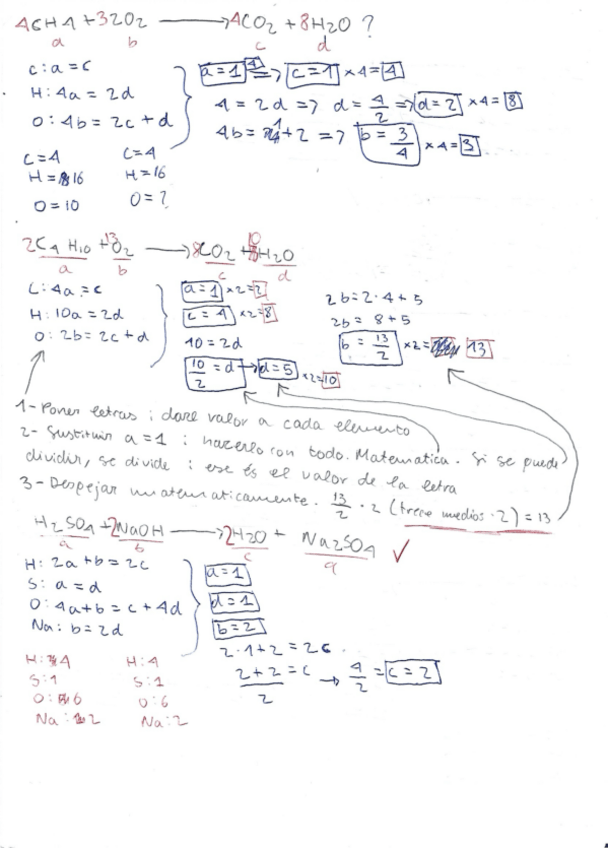 4CH4 + 3 2O2 ⟶ 4CO2 + 8H2O ?
a b c d
C: a = c
H: 4a = 2d
O: 4b = 2c + d
a=1 4 => c=1 ×4= 4
4 = 2d => d = 4/2 => d=2 ×4= 8
4b = 1+2 => b = 3/4 ×4= 3
C=4 C=4
H=16 H=16
O=10 O=?
2C4H10 + 13O2 ⟶ 8CO2 + 10H2O
a b c d
C: 4a = c
H: 10a = 2d
O: 2b = 2c + d
a=1 ×2= 2
c=4 ×2= 8
10 = 2d
10/2 = d → d=5 ×2= 10
2b = 2·4+5
2b = 8+5
b = 13/2 ×2= 13
1- Poner letras ; darle valor a cada elemento
2- Sustituir a=1 ; hacerlo con todo. Matematica. Si se puede
dividir, se divide : ese és el valor de la letra
3- Despejar matematicamente. 13/2 · 2 (trece medios · 2) = 13
H2SO4 + 2NaOH ⟶ 2H2O + Na2SO4 ✓
a b c d
H: 2a+b=2c
S: a=d
O: 4a+b=c+4d
Na: b=2d
a=1
d=1
b=2
2·1+2=2c
2+2/2 = c → 4/2 = c=2
H: 4 H: 4
S: 1 S: 1
O: 6 O: 6
Na: 2 Na: 2